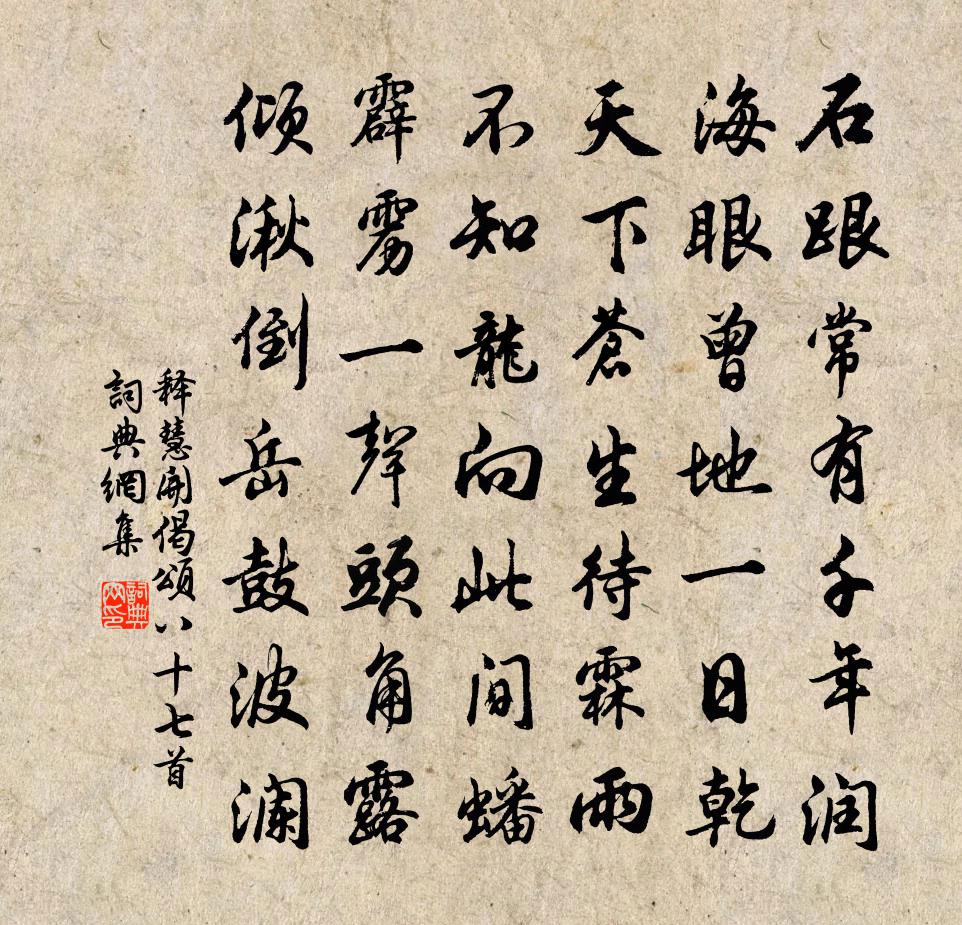 石跟常有千年润
海眼曾地一日乾
天下蒼生待霖雨
不知龍向此間蟠
霹雳一聲頭角露
倾湫倒岳鼓波澜
释慧開偈頌八十七首
詞典網集
詞典网印